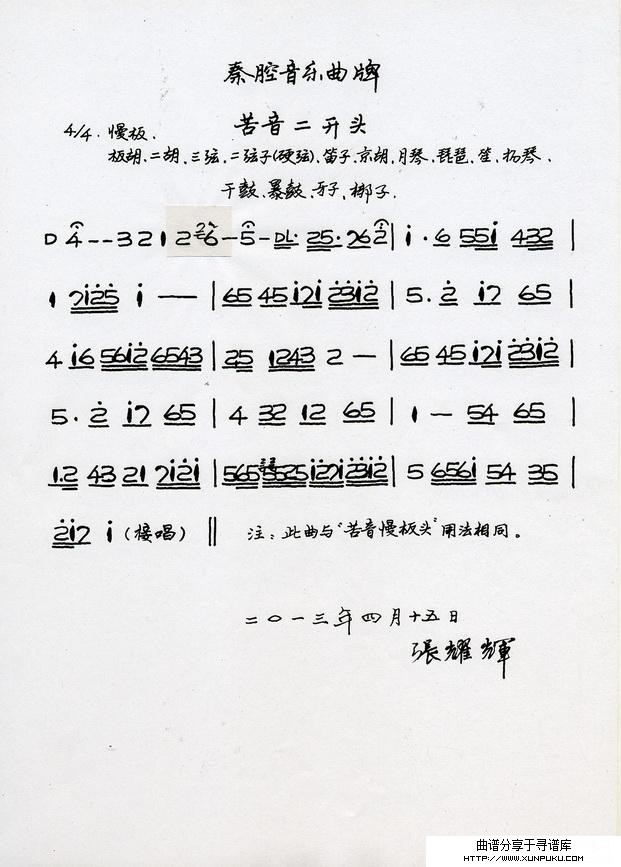 秦腔音乐曲牌
苦音二开头
4/4. 慢板.
板胡、二胡、三弦、二弦子(硬弦)、笛子、京胡、月琴、琵琶、笙、扬琴、
干鼓、暴鼓、牙子、梆子.
D 4--321 2 26-5-DL. 25.262 | i.6 55i 432 |
1 7i25 i — | 65 45 i7i 23i2 | 5.2 i7 65 |
4 i6 56i2 6543 | 25 1243 2 — | 65 45 i7i 23i2 |
5.2 i7 65 | 4 32 12 65 | 1 — 54 65 |
1.2 43 21 7i2i | 565 5525 i27i 23i2 | 5 656i 54 35 |
2i7 i (接唱) ‖ 注:此曲与“苦音慢板头”用法相同。
二〇一三年四月十五日
張耀輝
曲谱分享于寻谱库
HTTP://WWW.XUNPUKU.COM